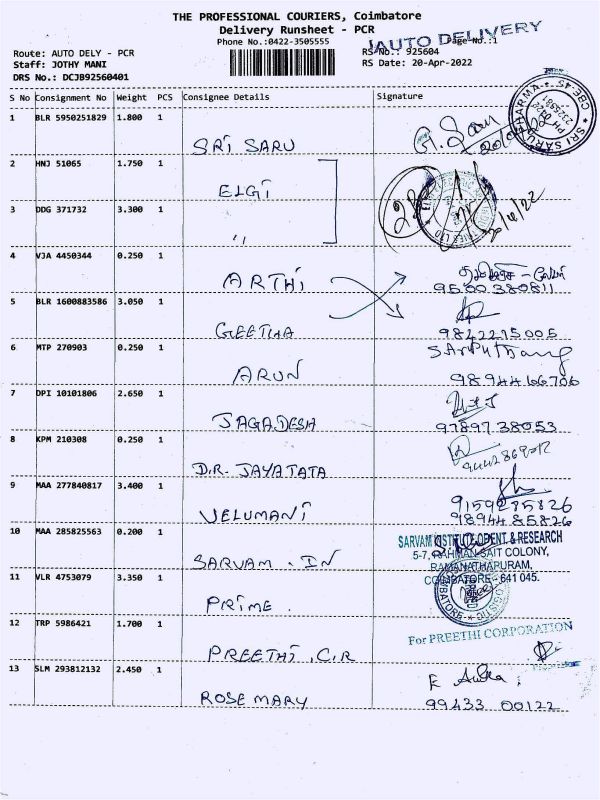 THE PROFESSIONAL COURIERS, Coimbatore
Delivery Runsheet - PCR
Phone No.:0422-3505555
AUTO DELIVERY
Page No.:1
Route: AUTO DELY - PCR
RS No.: 925604
Staff: JOTHY MANI
RS Date: 20-Apr-2022
DRS No.: DCJB92560401
S No Consignment No Weight PCS Consignee Details Signature
1 BLR 5950251829 1.800 1
SRI SARU
SRI SARU PHARMA
2 HNJ 51065 1.750 1
ELGI
3 DDG 371732 3.300 1
"
4 VJA 4450344 0.250 1
ARTHI
9500380811
5 BLR 1600883586 3.050 1
GEETHA
9842215005
6 MTP 270903 0.250 1
ARUN
9894466706
7 DPI 10101806 2.650 1
JAGADESH
9789738053
8 KPM 210308 0.250 1
D.R. JAYATATA
9 MAA 277840817 3.400 1
VELUMANI
9159285826
9894485826
10 MAA 285825563 0.200 1
SARVAM . IN
SARVAM INSTITUTE & RESEARCH
5-7, RAHMAN SAIT COLONY,
RAMANATHAPURAM,
COIMBATORE - 641 045.
11 VLR 4753079 3.350 1
PRIME .
12 TRP 5986421 1.700 1
PREETHI . C.R
For PREETHI CORPORATION
13 SLM 293812132 2.450 1
ROSE MARY
99433 00122